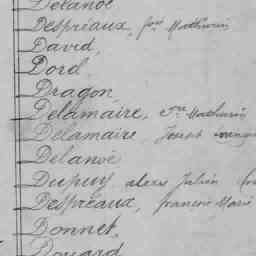 Delanoë
Despréaux, Mathurin
David,
Dord,
Dragon
Delamaire, Mathurin
Delamaire,
Delanoë
Dupuy, Julien
Despréaux, francois Marie
Donnet,
Douard